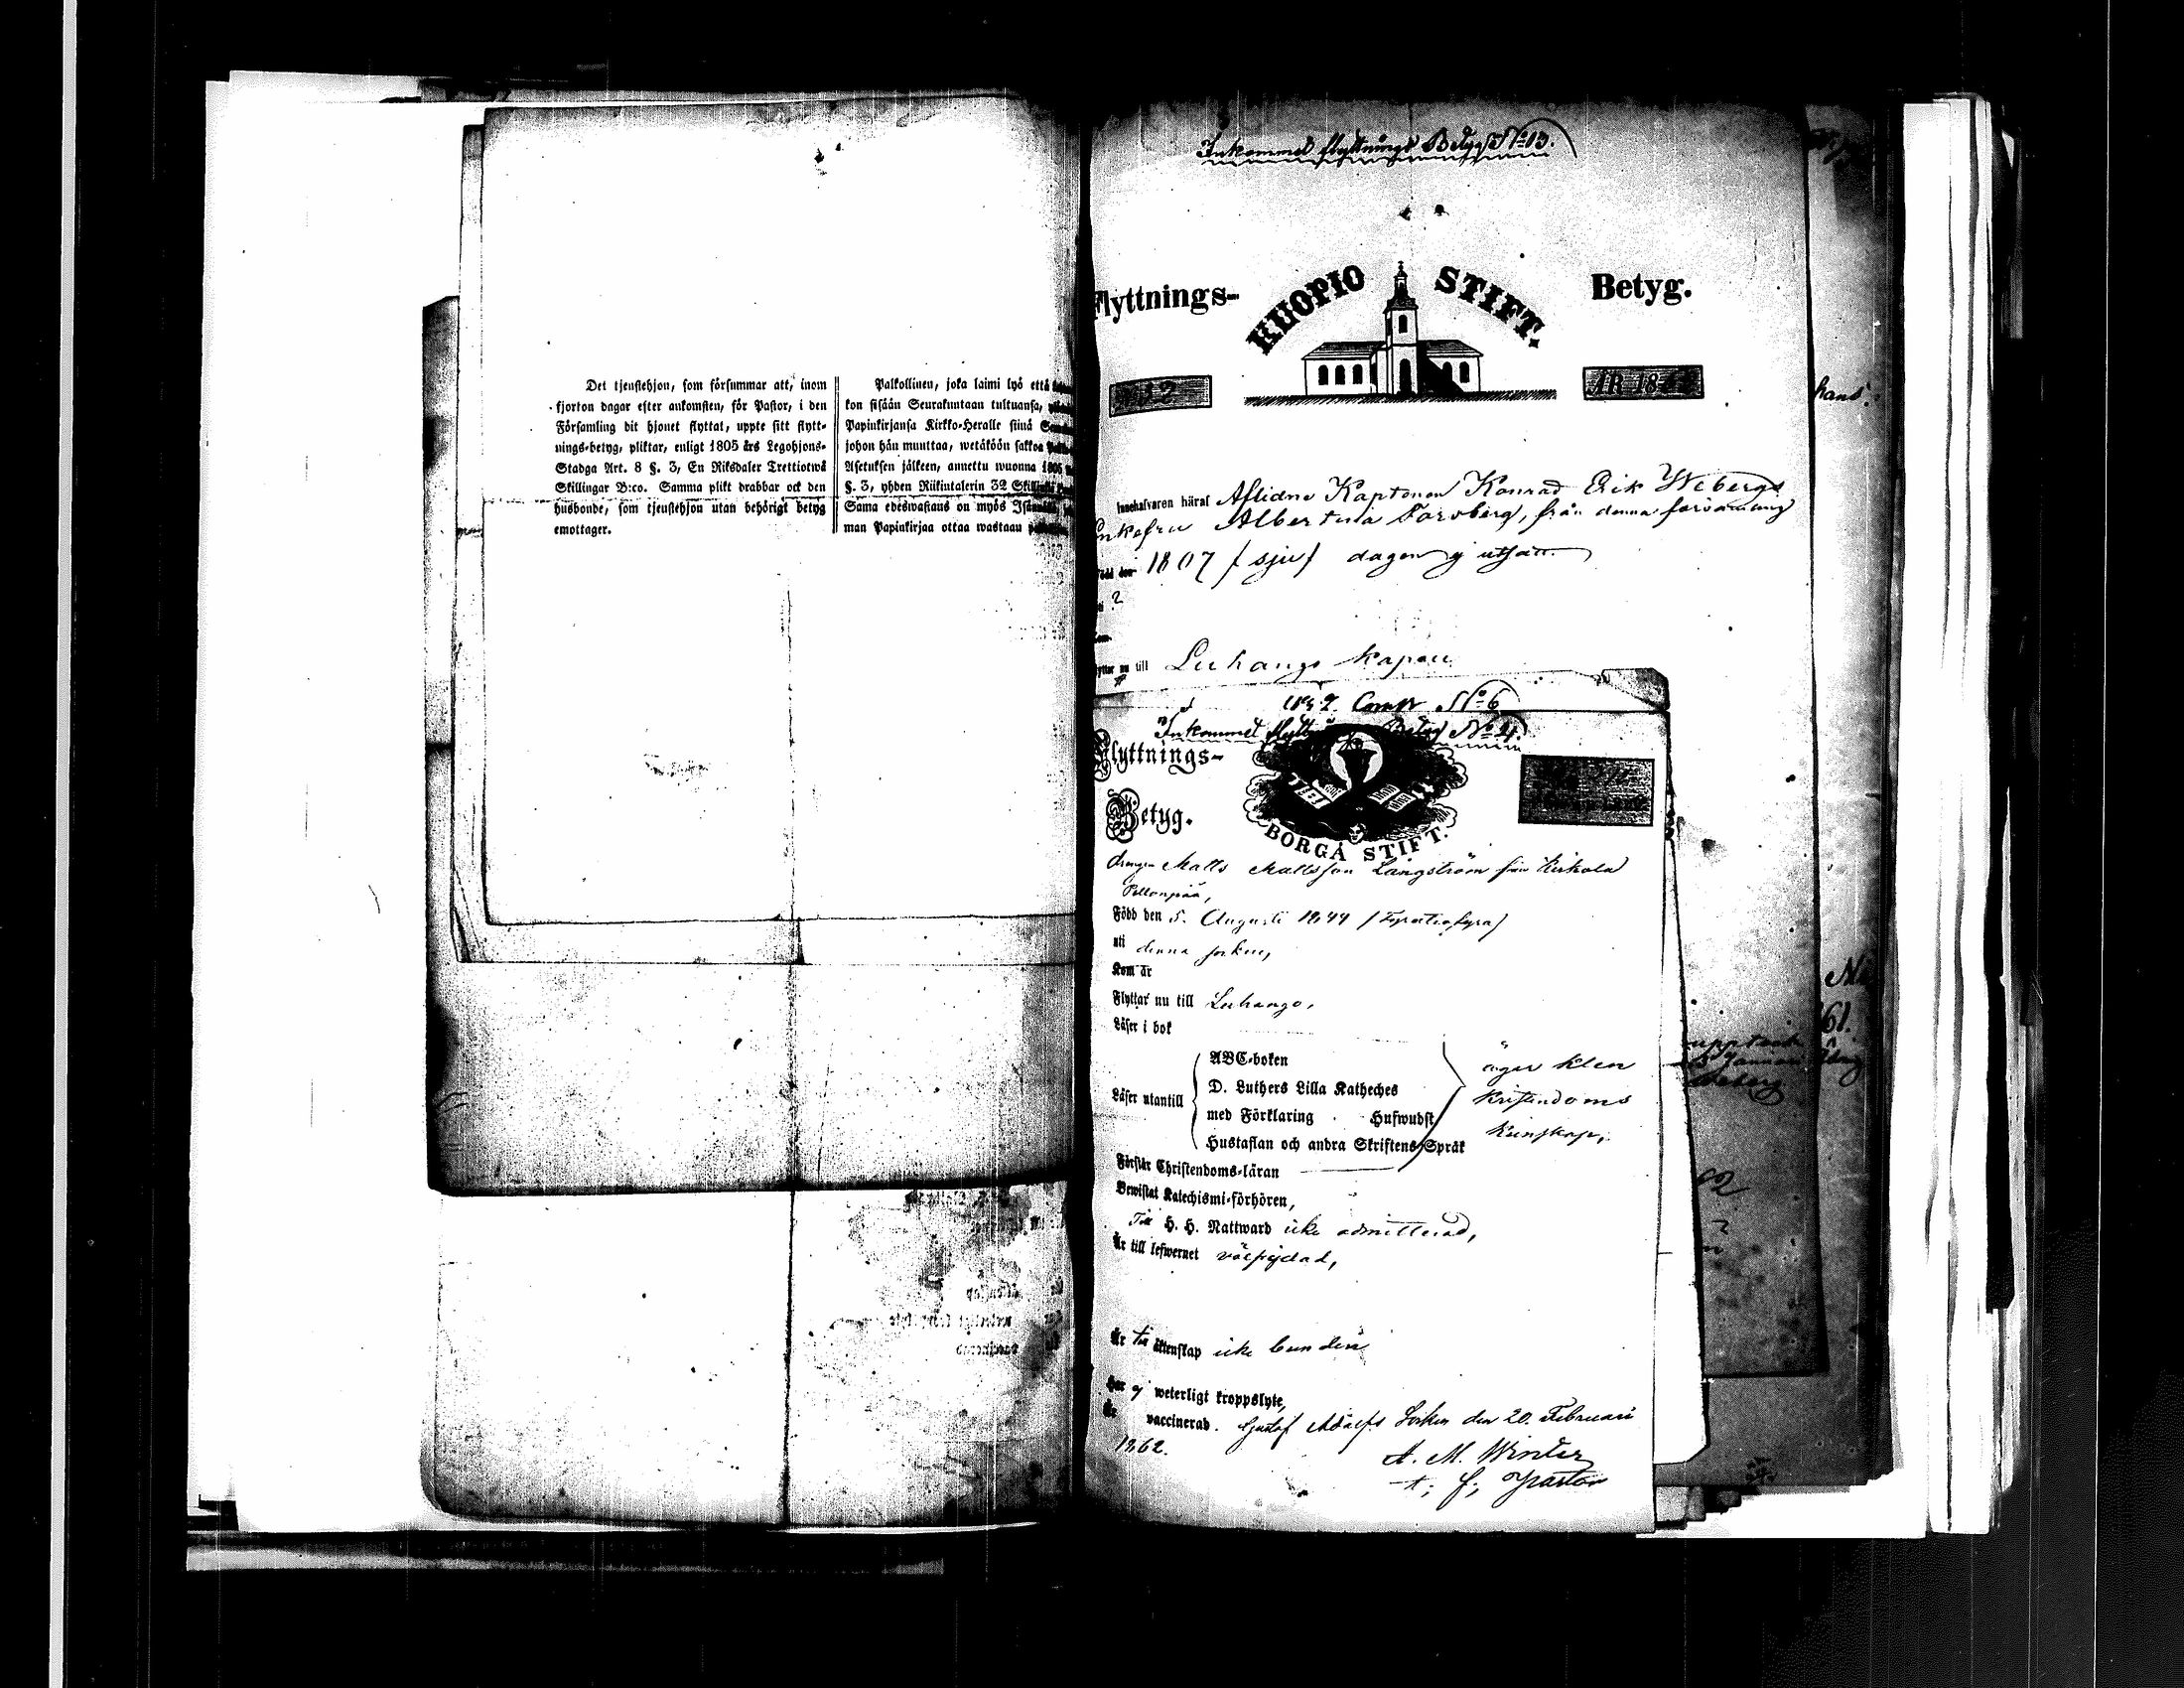 Det tjenstehjon, som försummar att, inom
fjorton dagar efter ankomsten, för Pastor, i den
Församling dit hjonet flyttat, uppte sitt flytt-
nings-betyg, pliktar, enligt 1805 års Legohjons-
Stadga Art. 8 §. 3, En Riksdaler Trettiotwå
Skillingar B:co. Samma plikt drabbar ock den
husbonde, som tjenstehjon utan behörigt betyg
emottager.
Palkollinen, joka laimi lyö että
kon sisään Seurakuntaan tultuansa,
Papinkirjansa Kirkko-Herralle siinä
johon hän muuttaa, wetäköön sakkoa
Asetuksen jälkeen, annettu wuonna 1805
§. 3, yhden Riikintalerin 32
Sama edeswastaus on myös
man Papinkirjaa ottaa wastaan
Inkommet flyttnings Betyg No 13.
Flyttnings-
KUOPIO STIFT.
Betyg.
ÅR 18
Innehafvaren häraf Aflidne Kaptenen Konrad Erik Webergs
Enkefru Albertina Forsberg, från denna församling
född den 1807 / sju / dagen ej utsatt
uti ?
Kom
flyttar nu till Luhango kapell
Comp No 6
Inkommet Betyg No 4.
Flyttnings-
Betyg.
BORGÅ STIFT.
drengen Matts Mattsson Långström från Kirkola
Pellonpää,
Född den 5. Augusti 1844 / Fyratiofyra /
uti denna socken,
Kom år
Flyttar nu till Luhango,
Läser i bok
Läser utantill
ABC-boken
D. Luthers Lilla Katheches
med Förklaring Hufwudst.
Hustaflan och andra Skriftens Språk
äger klen
Kristendoms
kunskap,
Förstår Christendoms-läran
Bewistat Katechismi-förhören,
Till H. H. Nattward icke admitterad,
Är till lefwernet välfrejdad,
Är till äktenskap icke bunden
Har ej weterligt kroppslyte,
Är vaccinerad. Gustaf Adolfs Socken den 20. Februari
1862.
A. M. Winter
t; f; Pastor
hans
61.